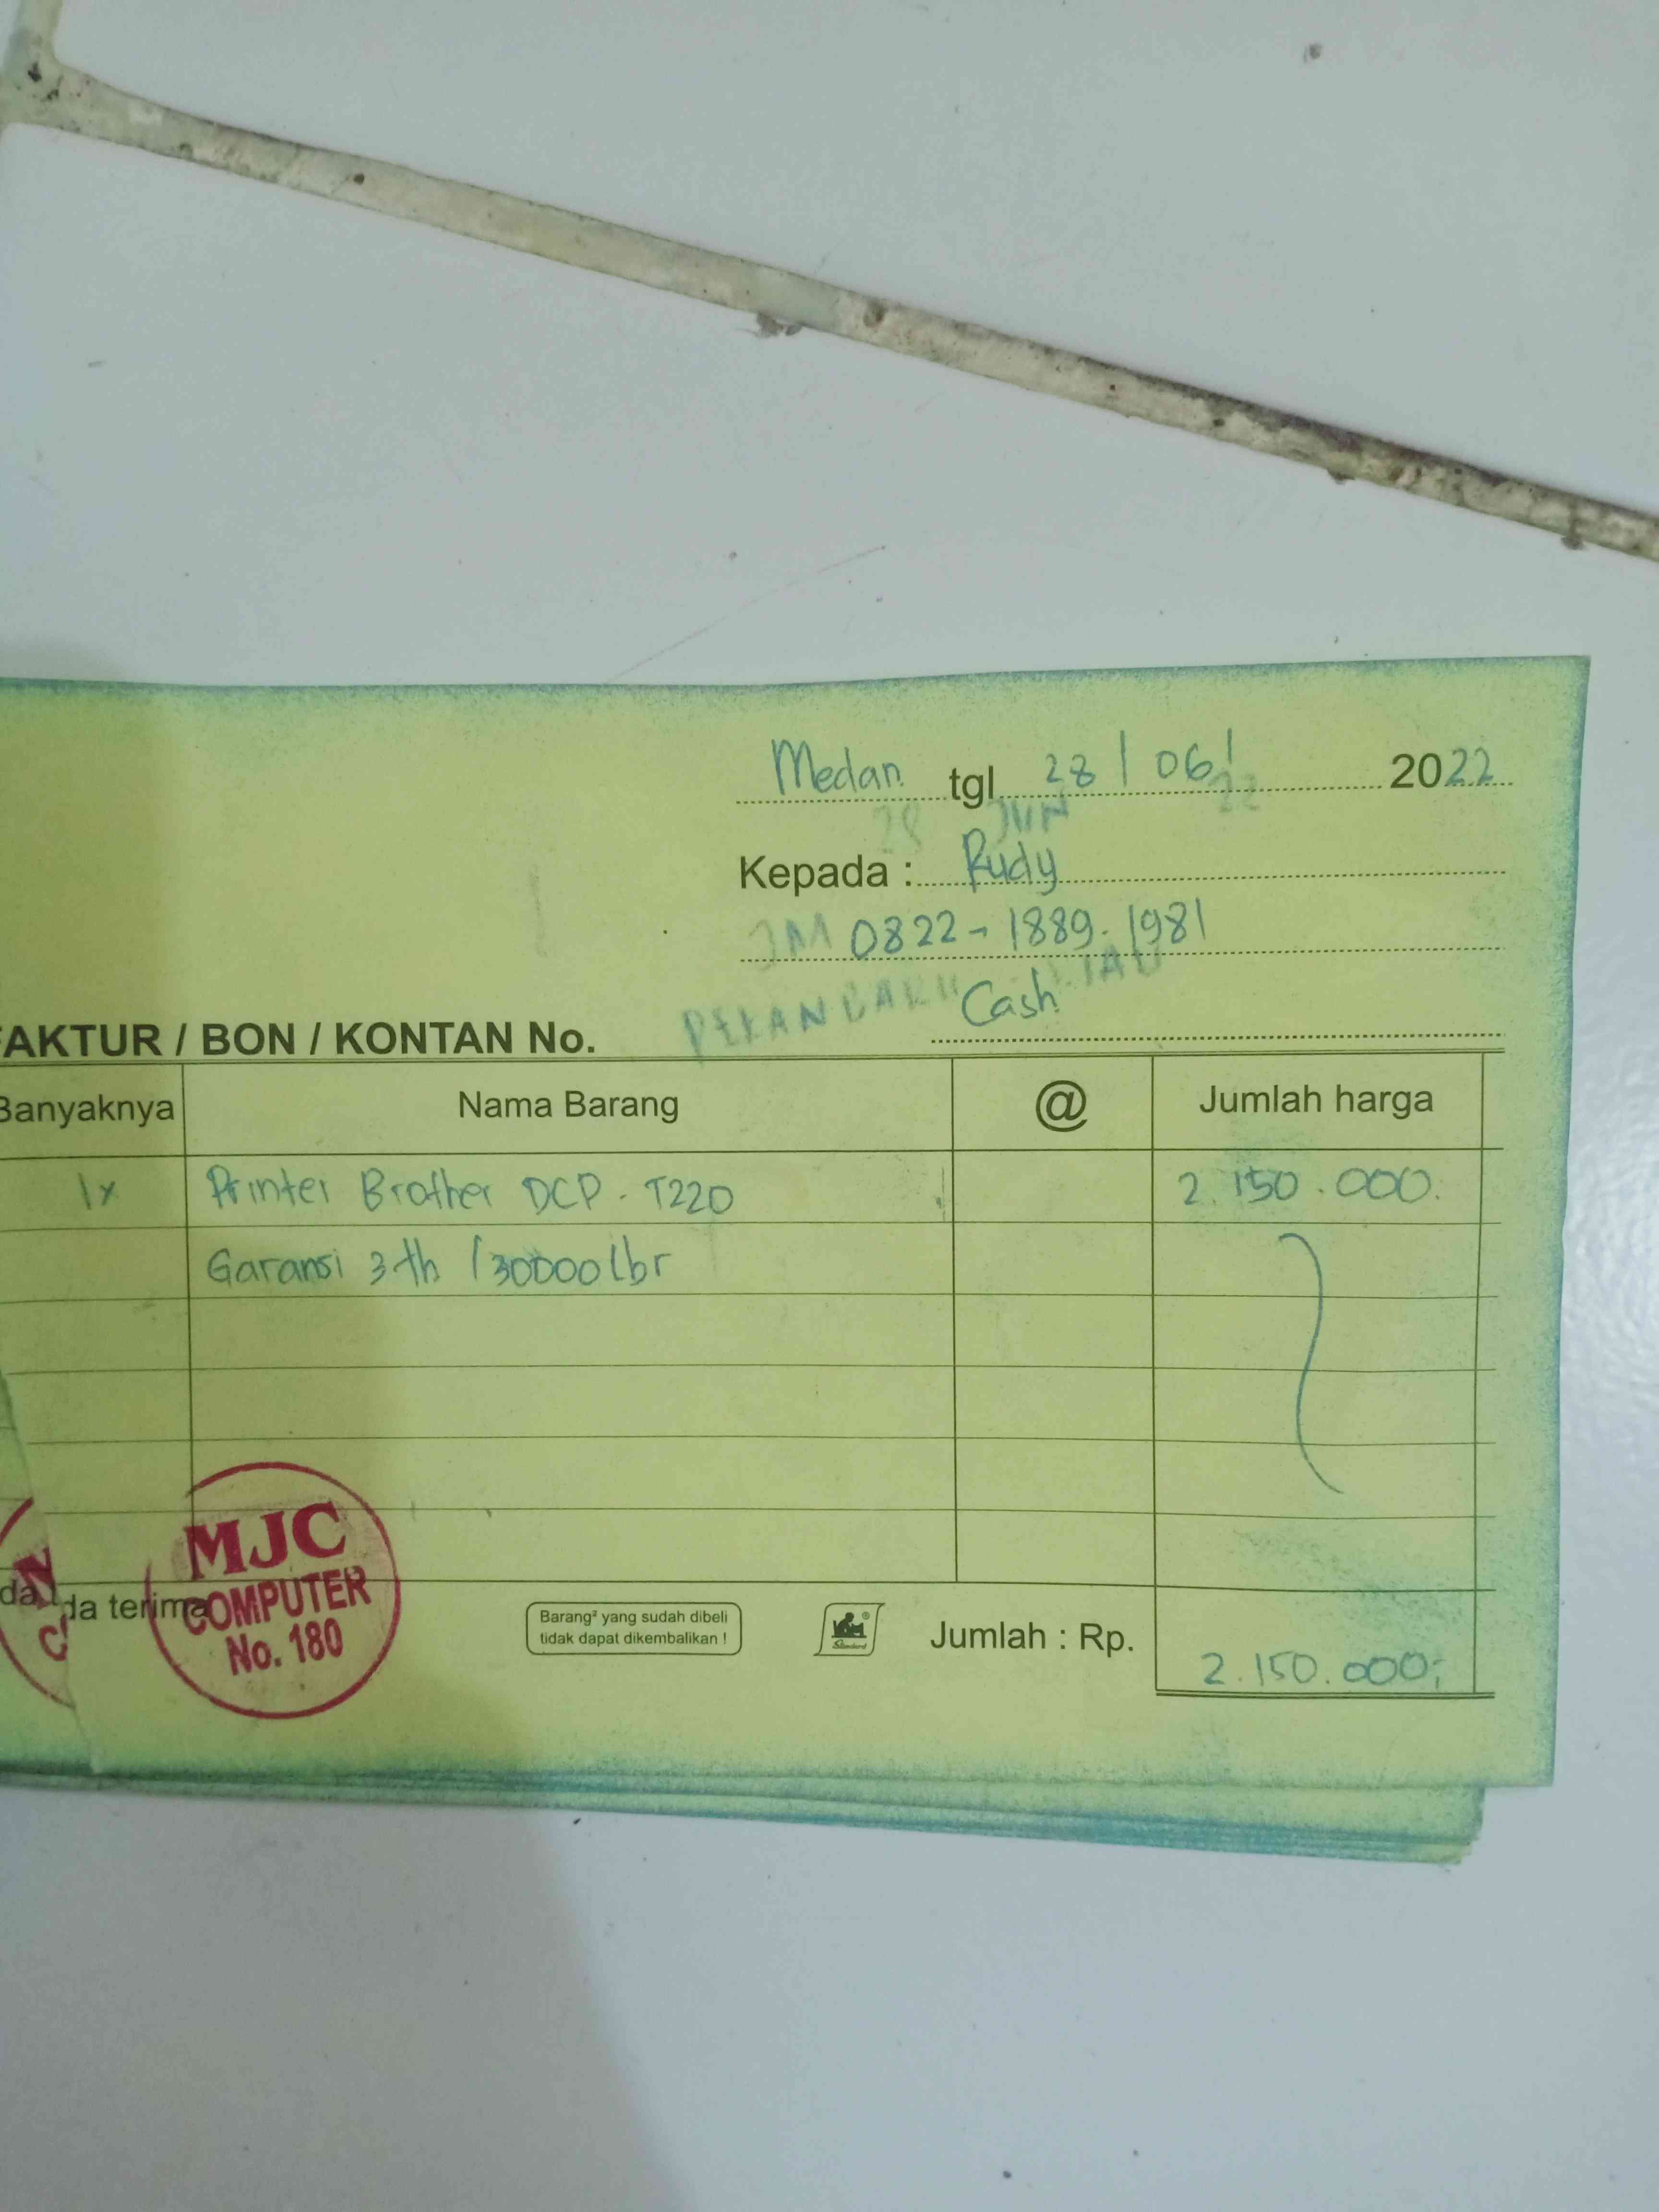 Medan tgl 28/06/ 2022
28 JUN 22
Kepada : Rudy
JM 0822-1889.1981
PEKANBARU
Cash
FAKTUR / BON / KONTAN No.
Banyaknya Nama Barang @ Jumlah harga
1x Printer Brother DCP-T220 2.150.000.
Garansi 3 th /30000 lbr
MJC
COMPUTER
No. 180
da terima
Barang² yang sudah dibeli
tidak dapat dikembalikan !
Standard
Jumlah : Rp. 2.150.000;